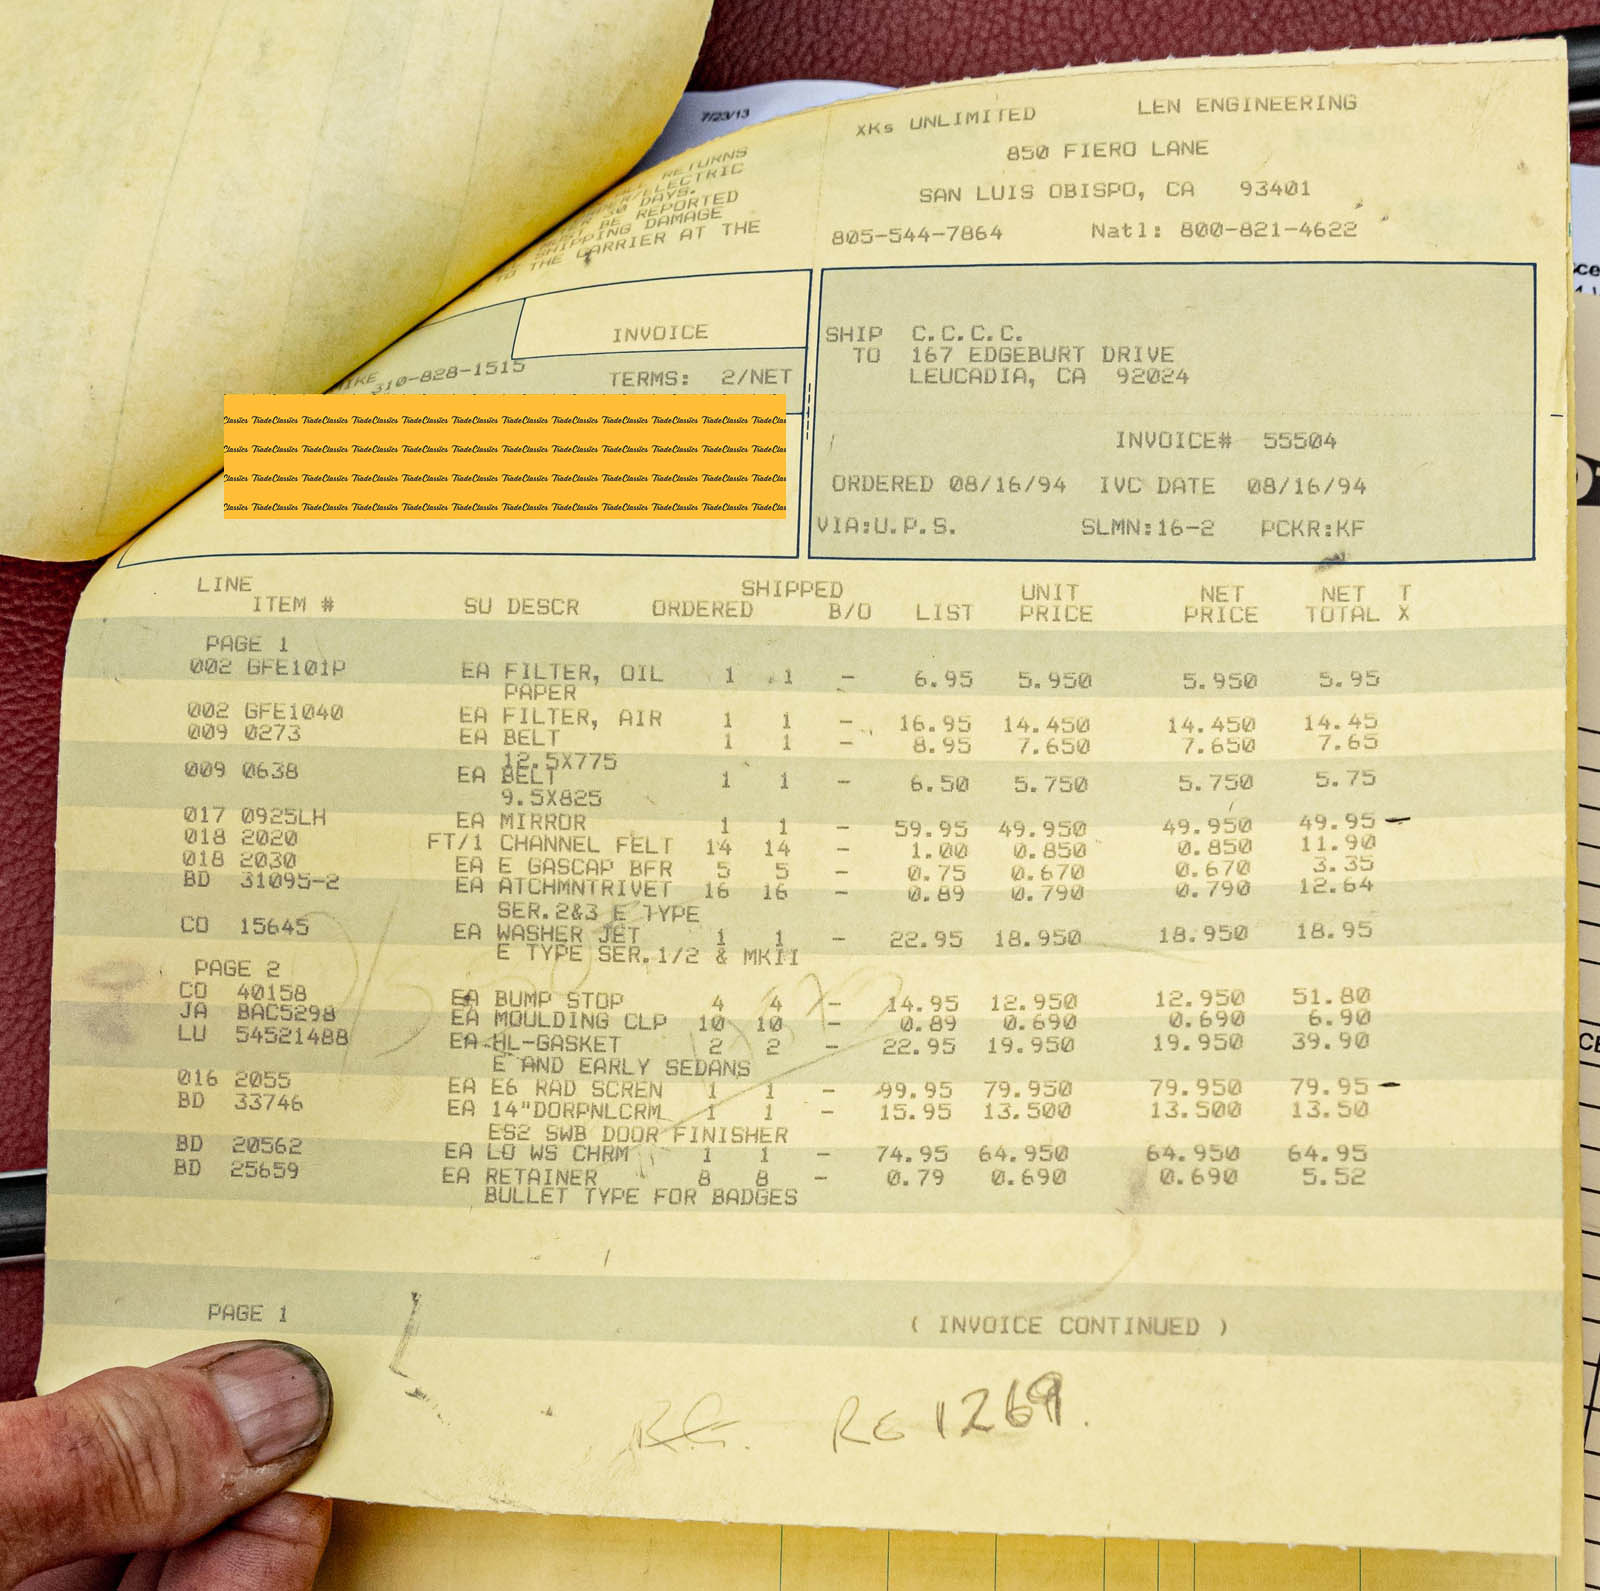 7/23/13
XKs UNLIMITED LEN ENGINEERING
850 FIERO LANE
SAN LUIS OBISPO, CA 93401
805-544-7864 Natl: 800-821-4622
RETURNS
/ELECTRIC
30 DAYS.
BE REPORTED
SHIPPING DAMAGE
TO THE CARRIER AT THE
INVOICE
MIKE 310-828-1515
TERMS: 2/NET
Trade Classics
SHIP C.C.C.C.
TO 167 EDGEBURT DRIVE
LEUCADIA, CA 92024
INVOICE# 55504
ORDERED 08/16/94 IVC DATE 08/16/94
VIA:U.P.S. SLMN:16-2 PCKR:KF
LINE SHIPPED UNIT NET NET T
ITEM # SU DESCR ORDERED B/O LIST PRICE PRICE TOTAL X
PAGE 1
002 GFE101P EA FILTER, OIL 1 1 - 6.95 5.950 5.950 5.95
PAPER
002 GFE1040 EA FILTER, AIR 1 1 - 16.95 14.450 14.450 14.45
009 0273 EA BELT 1 1 - 8.95 7.650 7.650 7.65
12.5X775
009 0638 EA BELT 1 1 - 6.50 5.750 5.750 5.75
9.5X825
017 0925LH EA MIRROR 1 1 - 59.95 49.950 49.950 49.95 -
018 2020 FT/1 CHANNEL FELT 14 14 - 1.00 0.850 0.850 11.90
018 2030 EA E GASCAP BFR 5 5 - 0.75 0.670 0.670 3.35
BD 31095-2 EA ATCHMNTRIVET 16 16 - 0.89 0.790 0.790 12.64
SER.2&3 E TYPE
CO 15645 EA WASHER JET 1 1 - 22.95 18.950 18.950 18.95
E TYPE SER.1/2 & MKII
PAGE 2
CO 40158 EA BUMP STOP 4 4 - 14.95 12.950 12.950 51.80
JA BAC5298 EA MOULDING CLP 10 10 - 0.89 0.690 0.690 6.90
LU 54521488 EA HL-GASKET 2 2 - 22.95 19.950 19.950 39.90
E AND EARLY SEDANS
016 2055 EA E6 RAD SCREN 1 1 - 99.95 79.950 79.950 79.95 -
BD 33746 EA 14"DORPNLCRM 1 1 - 15.95 13.500 13.500 13.50
ES2 SWB DOOR FINISHER
BD 20562 EA LO WS CHRM 1 1 - 74.95 64.950 64.950 64.95
BD 25659 EA RETAINER 8 8 - 0.79 0.690 0.690 5.52
BULLET TYPE FOR BADGES
PAGE 1 ( INVOICE CONTINUED )
R.G. RG 1269.